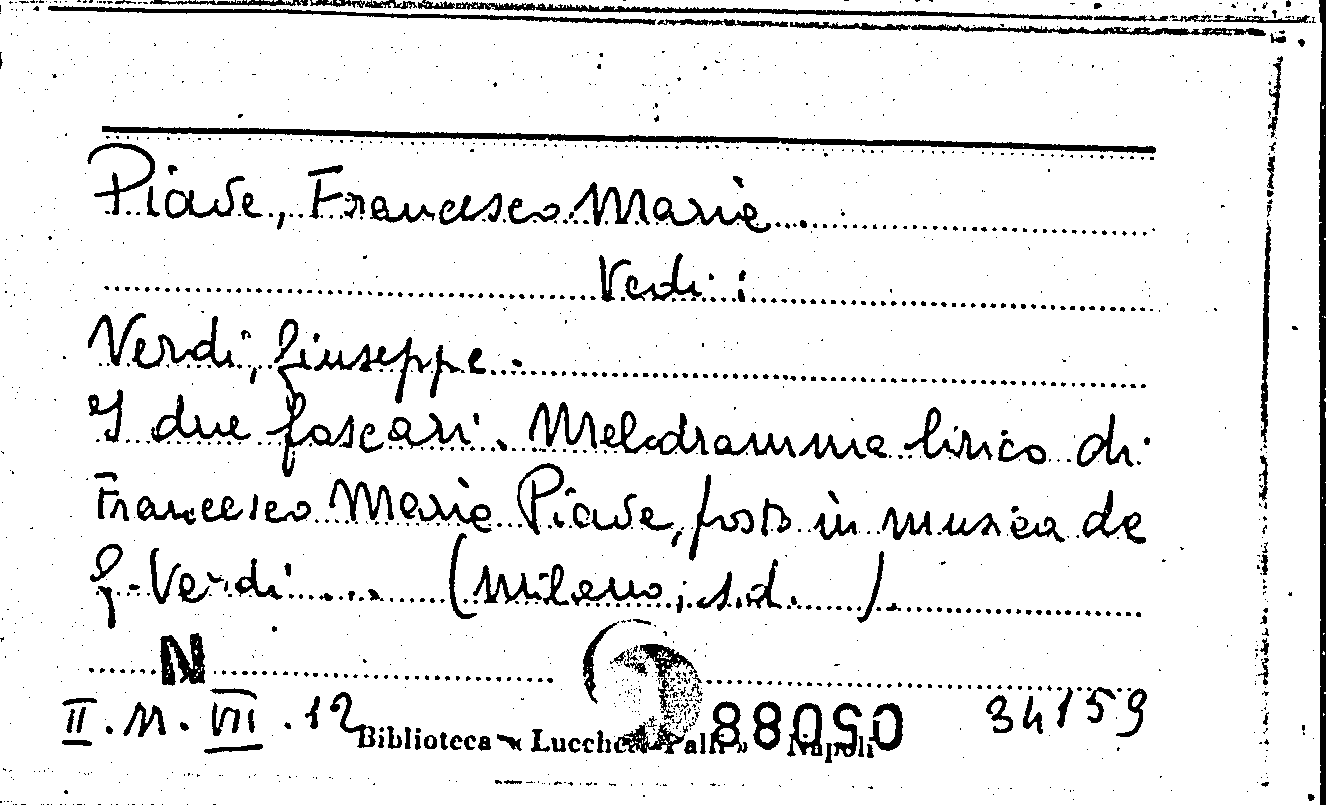 Piave, Francesco Maria.
Vedi:
Verdi, Giuseppe.
I due foscari. Melodramma lirico di
Francesco Maria Piave, posto in musica da
G. Verdi ... (Milano, s.d. ).
N
II. M. VII. 12
34159
Biblioteca « Lucchesi Palli » Napoli